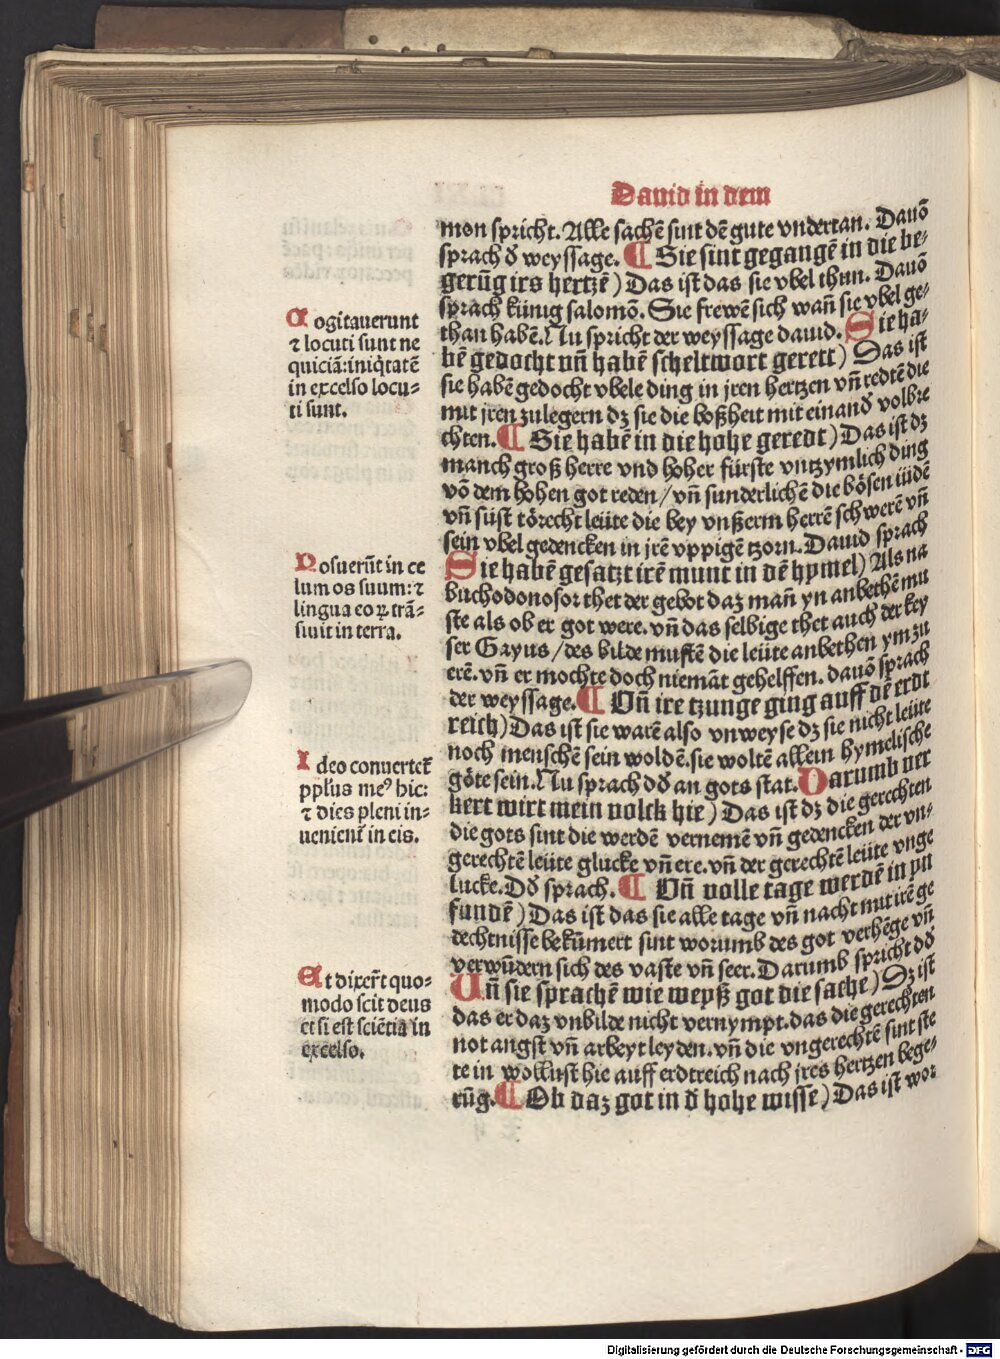 Dauid in dem
mon spricht. Alle sachē sint dē gute vndertan. Dauō
sprach d̕ weyssage. ¶ Sie sint gegangē in die be⸗
gerūg irs hertzē) Das ist das sie vbel thun. Dauō
sprach künig salomō. Sie frewē sich wañ sie vbel ge⸗
than habē. Nu spricht der weyssage dauid. Sie ha⸗
bē gedocht vñ habē scheltwort gerett) Das ist
sie habē gedocht vbele ding in jren hertzen vñ redtē die
mit jren zulegern dz sie die boßheit mit einand̕ volbre
chten. ¶ Sie habē in die hohe geredt) Das ist dz
manch groß herre vnd hoher fürste vntzymlich ding
vō dem hohen got reden / vñ sunderlichē die bösen iüdē
vñ süst törecht leüte die bey vnßerm herrē schwerē vñ
sein vbel gedencken in jrē vppigē tzorn. Dauid sprach
Sie habē gesatzt irē munt in dē hymel) Als na
buchodonosor thet der gebot daz mañ yn anbethē mu
ste als ob er got were. vñ das selbige thet auch der key
ser Gayus / des bilde mustē die leüte anbethen ym zu
erē. vñ er mochte doch niemāt gehelffen. dauō sprach
der weyssage. ¶ Vñ ire tzunge ging auff dē erdt
reich) Das ist sie warē also vnweyse dz sie nicht leüte
noch menschē sein woldē. sie woltē allein hymelische
göte sein. Nu sprach dd̕ an gots stat. Darumb ver
kert wirt mein volck hie) Das ist dz die gerechten
die gots sint die werdē vernemē vñ gedencken der vn⸗
gerechtē leüte glucke vñ ere. vñ der gerechtē leüte vnge
lucke. Dd̕ sprach. ¶ Vñ volle tage werdē in yn
fundē) Das ist das sie alle tage vñ nacht mit irē ge
dechtnisse bekūmert sint worumb des got verhēge vñ
verwūdern sich des vaste vñ seer. Darumb spricht dd̕
Vñ sie sprachē wie weyß got die sache) Dz ist
das er daz vnbilde nicht vernympt. das die gerechten
not angst vñ arbeyt leyden. vñ die vngerechtē sint ste
te in wollust hie auff erdtreich nach jres hertzen bege⸗
rūg. ¶ Ob daz got in d̕ hohe wisse) Das ist wor
Cogitauerunt
⁊ locuti sunt ne
quiciā: iniq̇tatē
in excelso locu⸗
ti sunt.
Posuerūt in ce
lum os suum: ⁊
lingua eoꝝ trā⸗
siuit in terra.
Ideo conuertet̄
ppl̕us meꝰ hic:
⁊ dies pleni in⸗
uenient̄ in eis.
Et dixer̄t quo⸗
modo scit deus
et si est sciētia in
excelso.
Digitalisierung gefördert durch die Deutsche Forschungsgemeinschaft - DFG